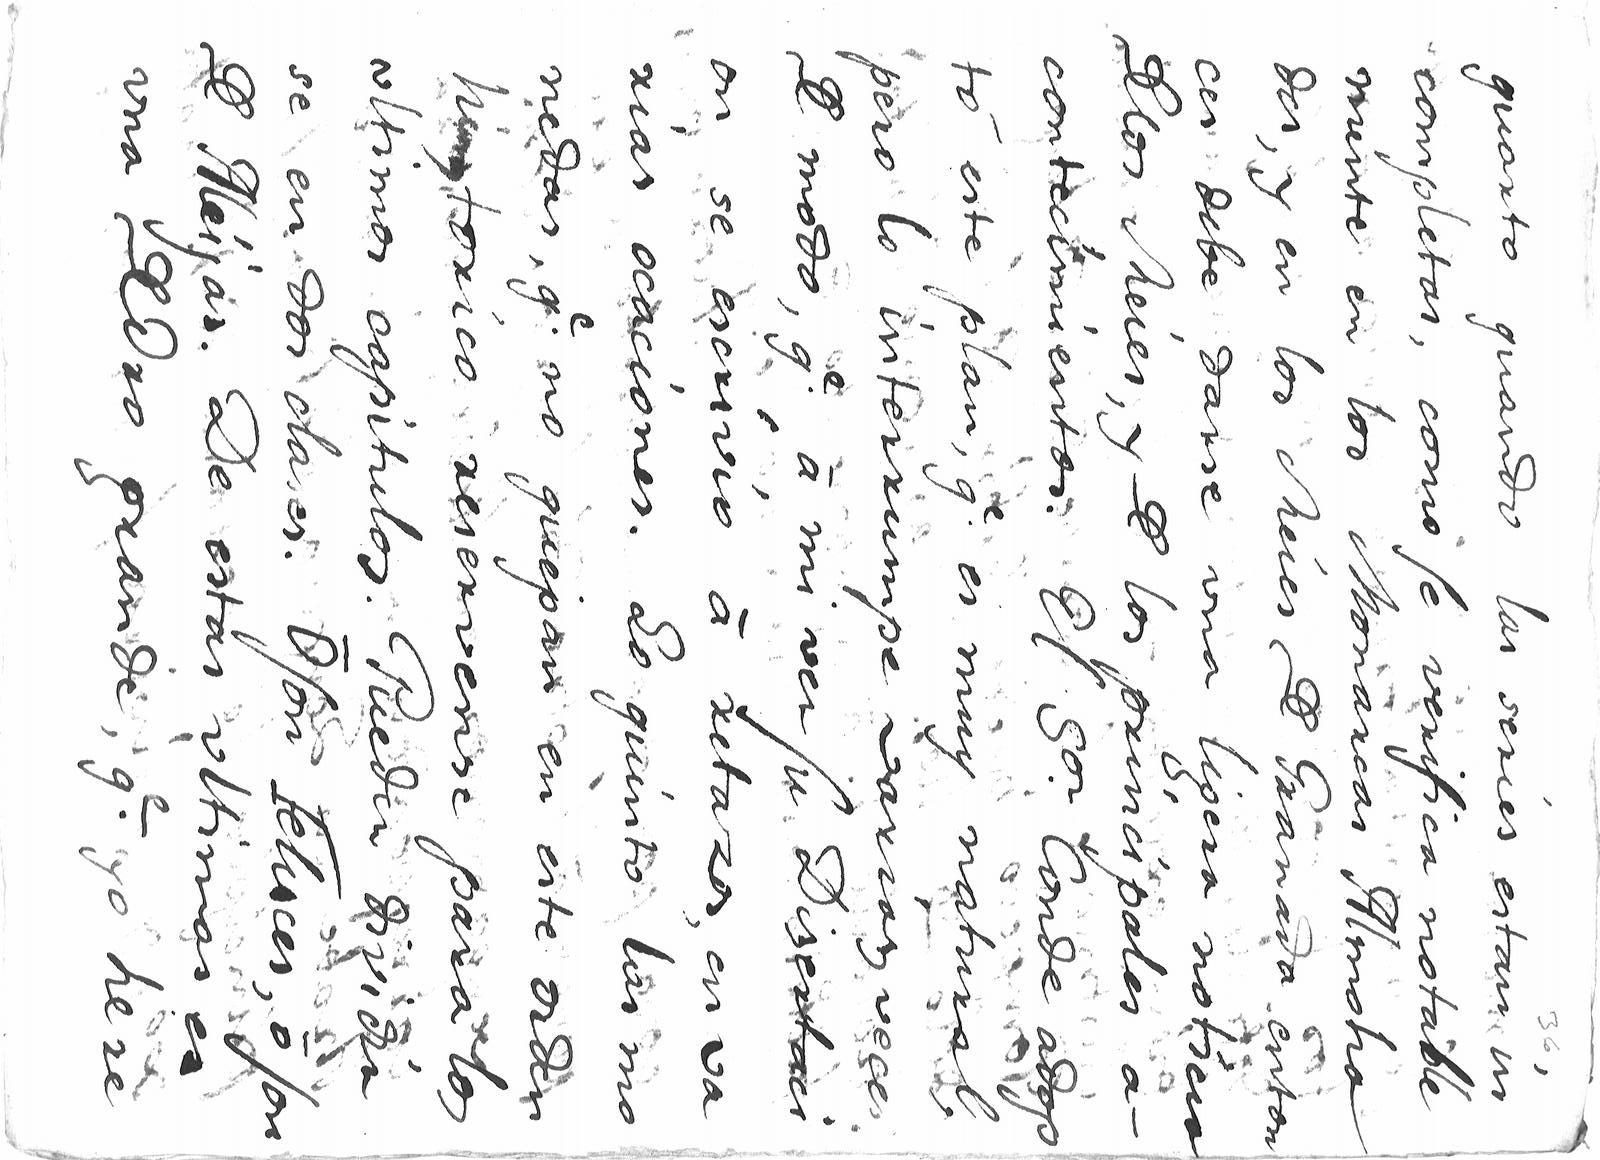 36,
quarto quando las series estan in
completas, como se verifica notable
mente en los Monarcas Almoha
des, y en los Reies de Granada, enton
ces debe darse una ligera noticia
de los Reies, y de los principales a-
contecimientos. El Sor. Conde adop
tó este plan, q.e es muy natural,
pero lo interrumpe varias veces,
de modo, q.e á mi ver su Disertaci
on se escrivio á retazos, en va
rias ocaciones. Lo quinto las mo
nedas, q.e no quepan en este orden
historico reservense para los
ultimos capitulos. Pueden dividir
se en dos clases. O son feluces, ó son
de Alejas. De estas ultimas es
una de Oro grande, q.e yo he re